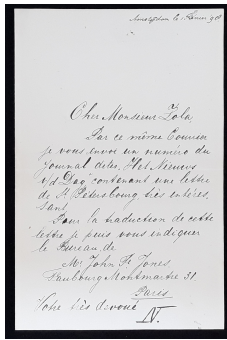 Amsterdam le 1 Février 98
Cher Monsieur Zola
Par ce même Courrier
je vous envoi un numéro du
journal dites, Het Nieuws
v/d Dag contenant une lettre
de St Petersbourg très intéres,
sant
Pour la traduction de cette
lettre je puis vous indiquer
le Bureau de
Mr John F. Jones
Faubourg Montmartre 31
Paris
Votre très devoué
IV.